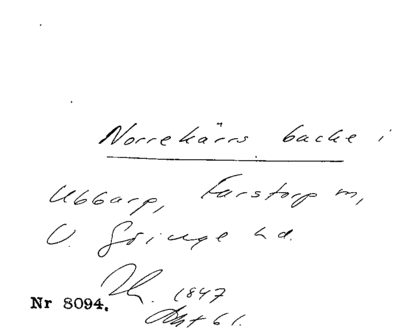 Norrekärrs backe i
Ubbarp, Farstorp m,
V. Göinge hd.
1847
Nr 8094.
61.